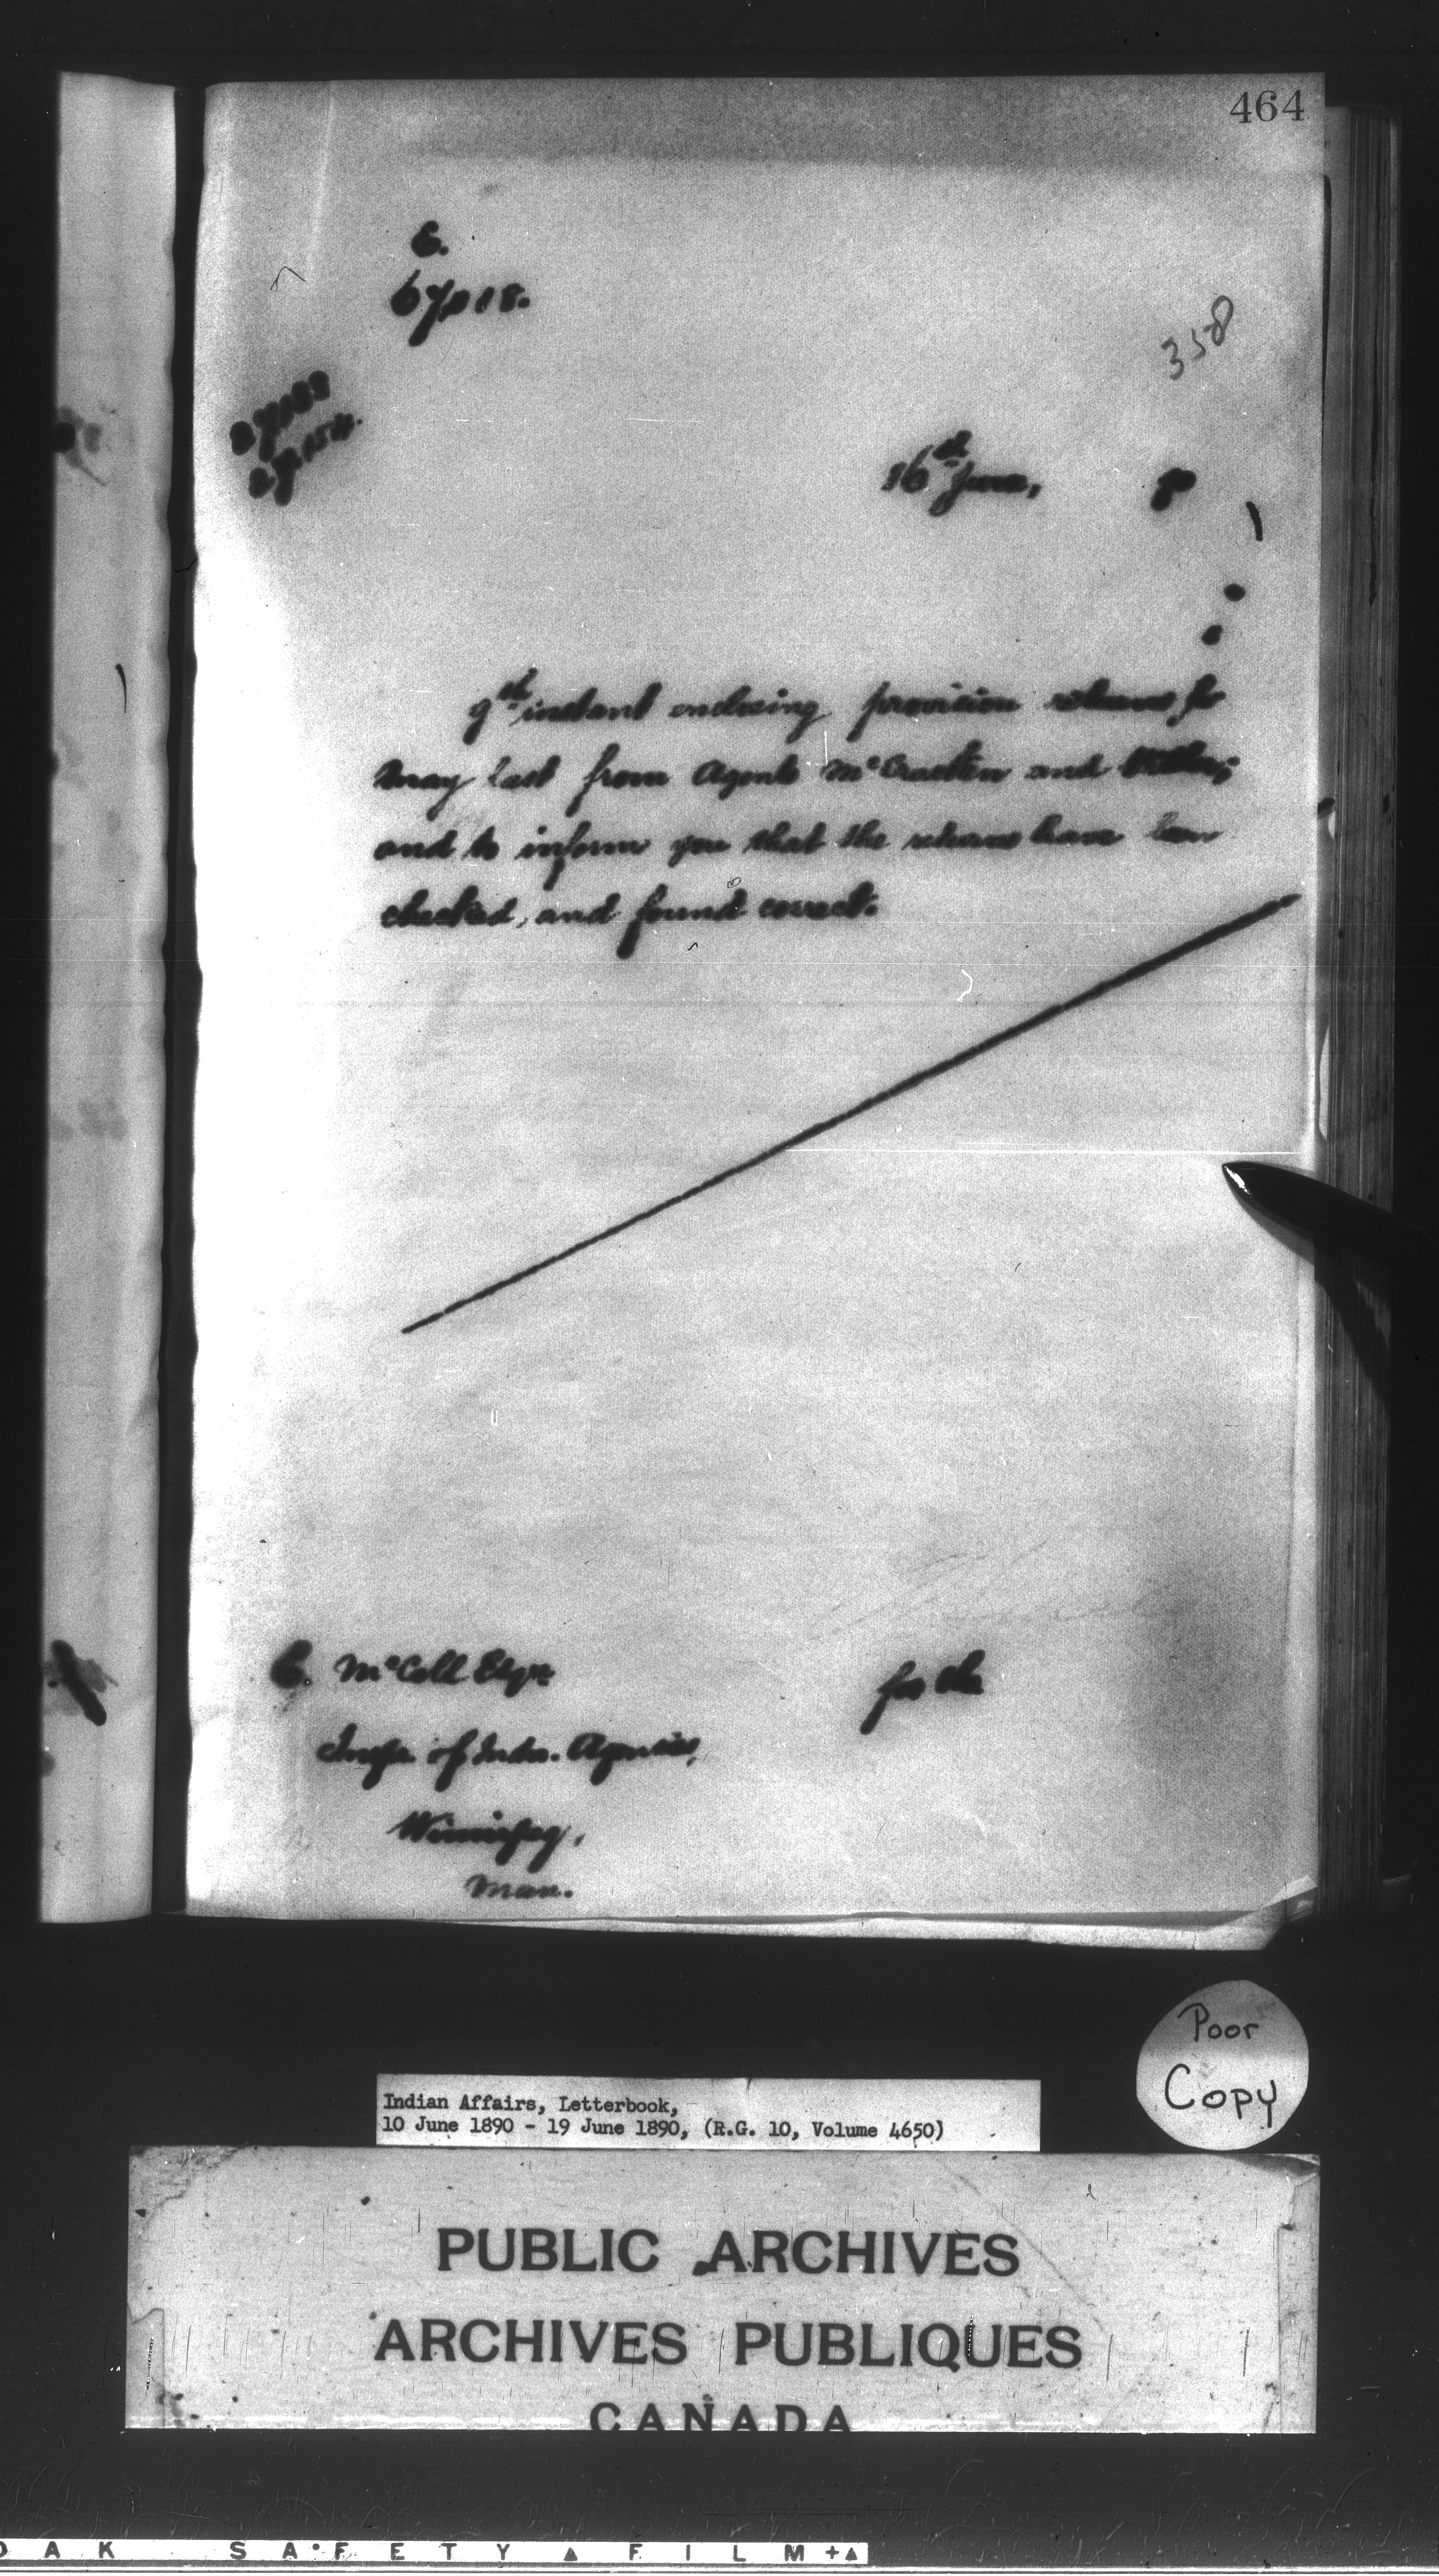 464
E.
67018.
358
16th June, 90
9th instant enclosing provision returns for
May last from Agents McCracken and
and to inform you that the returns have been
checked, and found correct.
E. McColl Esqre
for the
Inspr. of Indn. Agencies,
Winnipeg,
Man.
Poor
Copy
Indian Affairs, Letterbook,
10 June 1890 - 19 June 1890, (R.G. 10, Volume 4650)
PUBLIC ARCHIVES
ARCHIVES PUBLIQUES
CANADA
DAK SAFETY ▲ FILM +▲